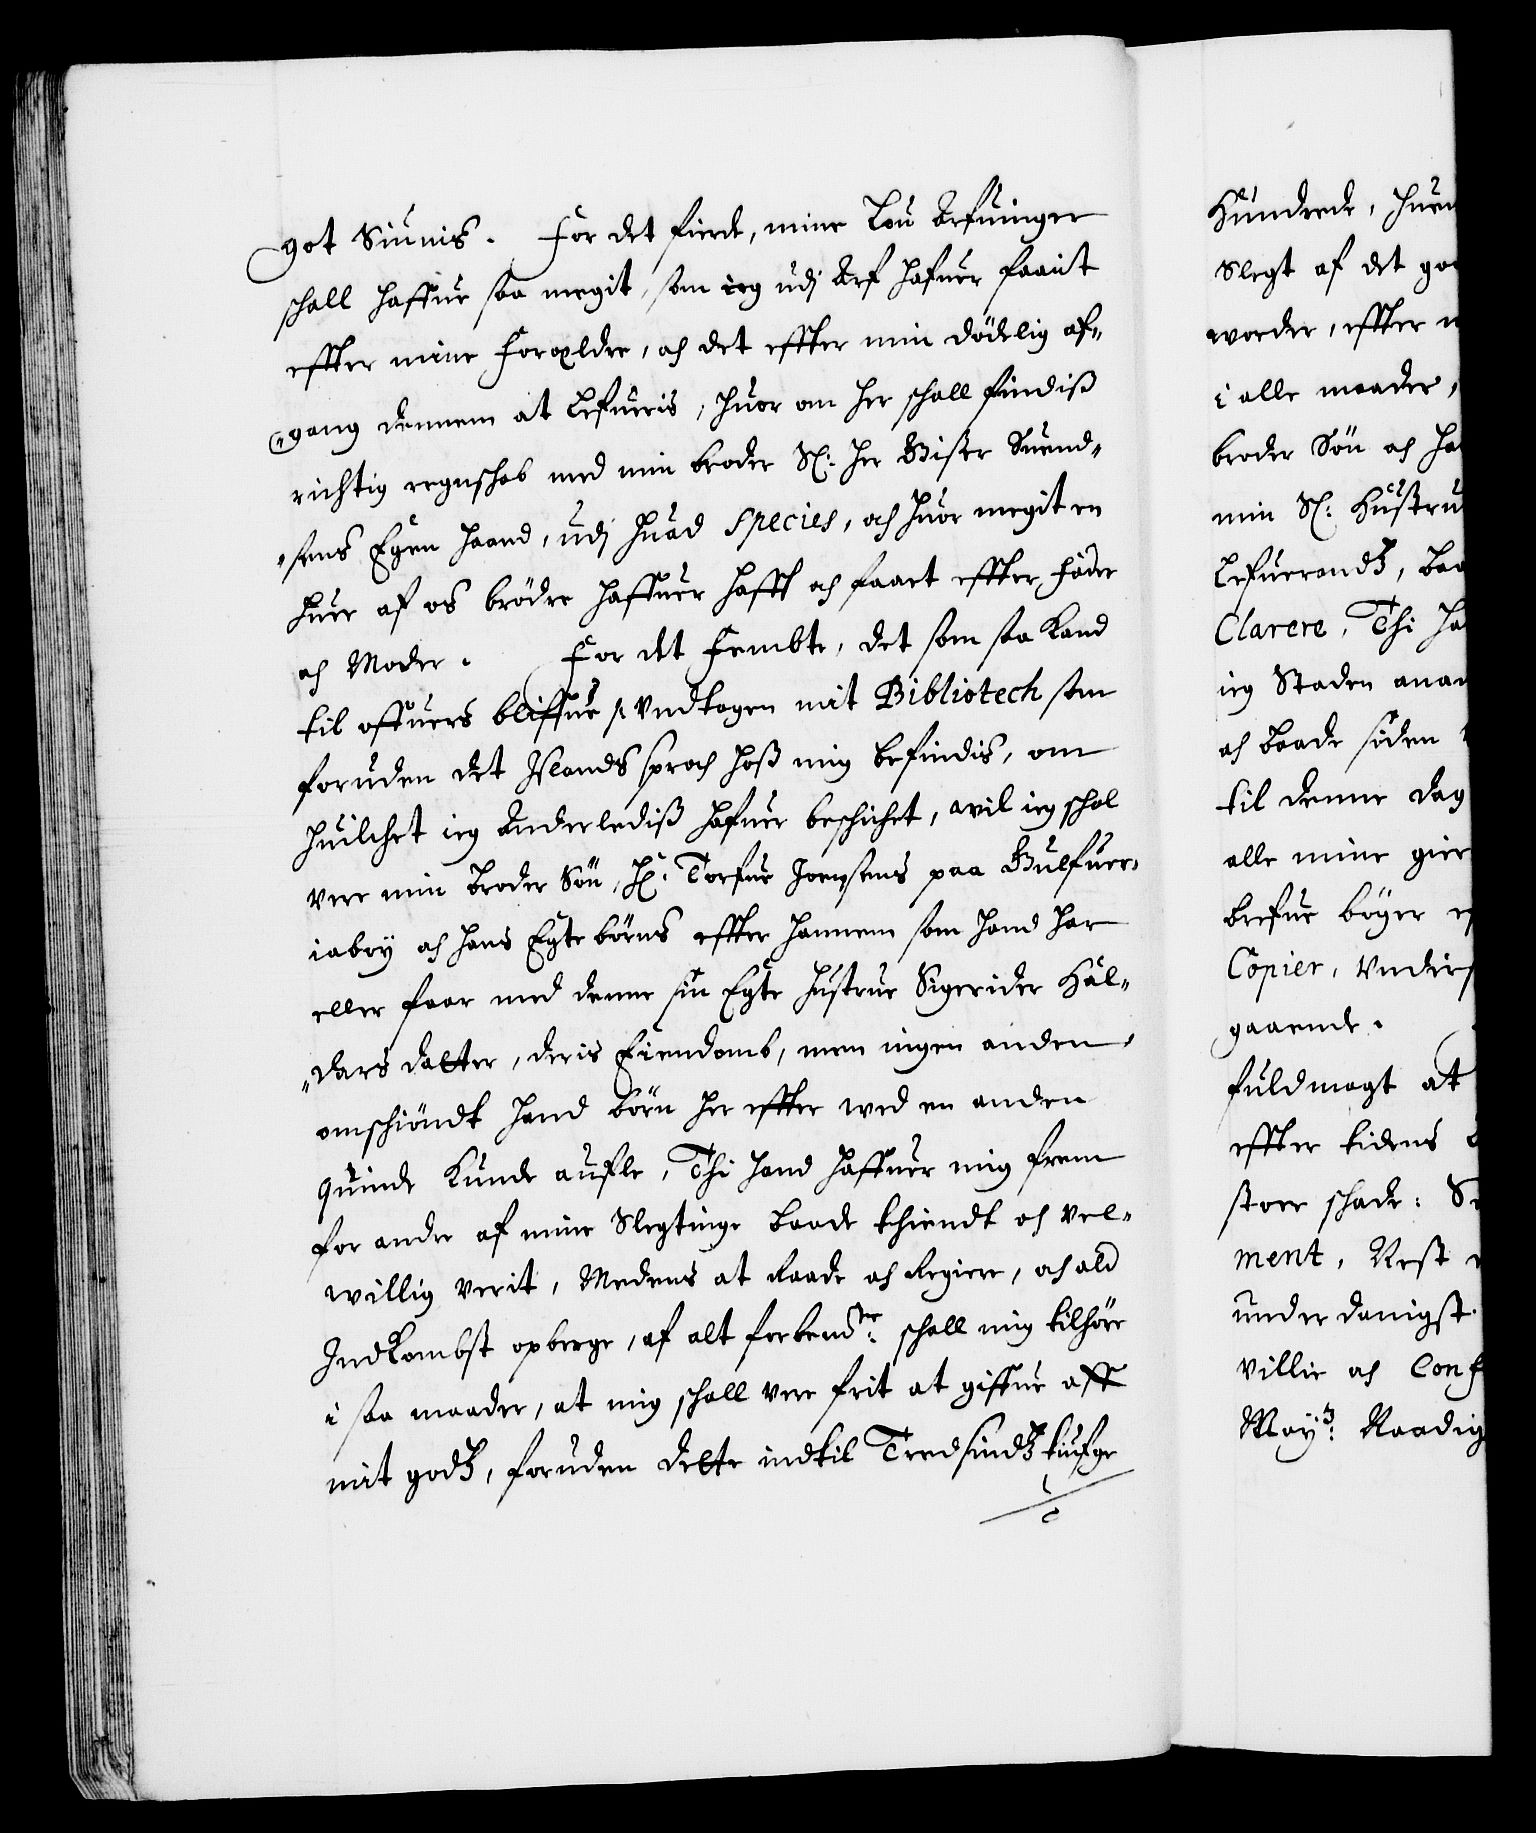 got Siunis. For det fierde, mine Lou Arfuinger
schall haffue saa megit, som ieg udj Arf hafuer faait
effter mine Forældre, och det effter min dödelig af-
gang dennem at Lefueris, huor om her schall findiß
richtig regnschab med min broder Sl: her Gißer Suend-
sens Egen haand, udj huad species, och huor megit en
huer af os brödre haffuer hafft och faaet effter, fader
och Moder. For det Fembte, det som saa kand
til offuers bliffue, vndtagen mit Bibliotech som
foruden det Islands sproch hoß mig befindis, om
huilchet ieg Anderlediß hafuer beschichet, wil ieg schal
vere min broder Sön, Hr: Torfue Jonsens paa Gulfuer-
iaböy och hans Egte börns effter hannem som hand har
eller faar med denne sin Egte hustrue Sigerider Hal-
dars datter, deris Eiendomb, men ingen anden,
omschiöndt hand börn her effter wed en anden
quinde kunde aufle, Thi hand haffuer mig frem
for andre af mine Slegtinge baade thiendt och vel-
willig verit, Medens at Raade och Regiere, och ald
Indkombst opberge, af alt forbende schall mig tilhöre
i saa maader, at mig schall vere frit at giffue aff
mit godß, foruden dette indtil Tredsindß tiufge
Hundrede, huer
Slegt af det go
worder, effter
i alle maader,
broder Sön och ha
min Sl: Hustru
Lefuerendß, baa
Clarere, Thi ha
ieg Staden ana
och baade siden
til denne dag
alle mine gier
brefue böger
Copier, Vnders
gaaende.
fuldmagt at
effter tidens
store schade: S
ment, Rest
under danigst
villie och Conf
Mayts: Naadig